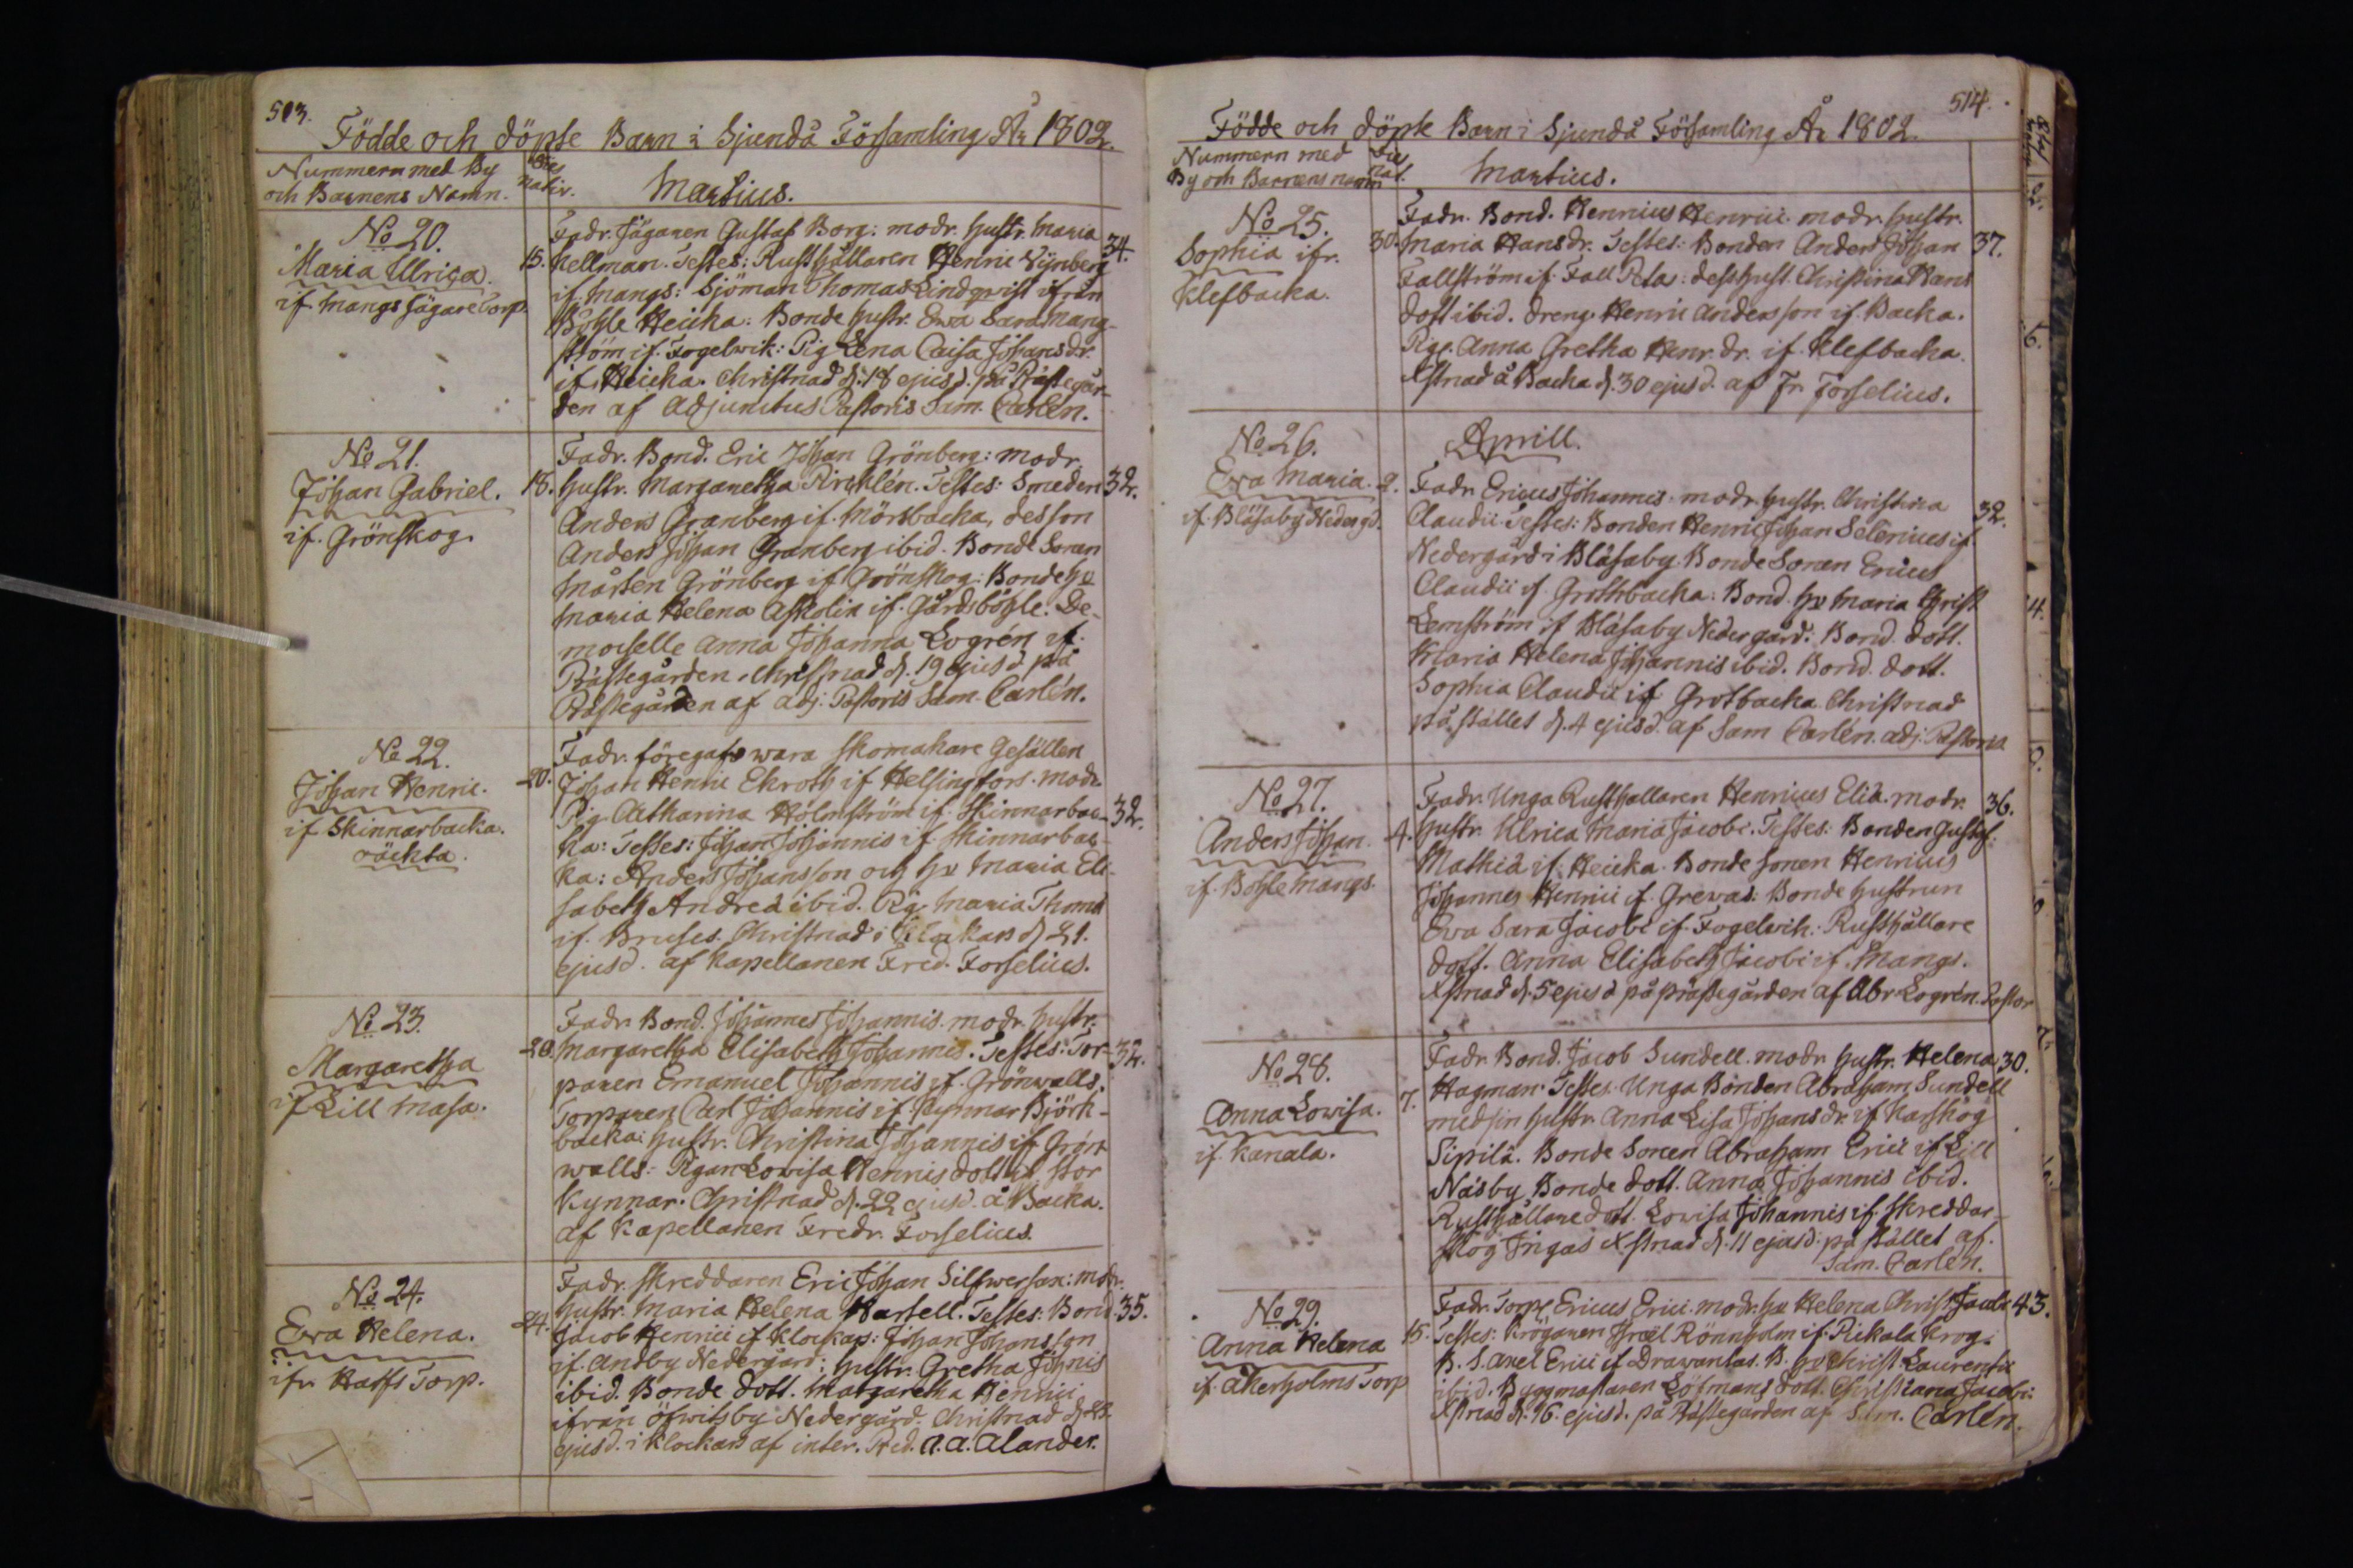 513.
Födde och döpte Barn i Sjundå Församling År 1802.
Nummern med By
och Barnens Namn.
Dies
Nativ.
Martius.
No 20.
Maria Ulrica.
if. Mangs Jägare Torp.
15.
Fadr. Jägaren Gustaf Borg: modr. hustr. Maria
34.
Kellman. Testes: Rusthållaren Henric Nynberg
if. Mangs: Sjöman Thomas Lindqvist ifrån
Böhle Heicka. Bonde hustr. Ewa Sara Mang-
ström if. Fogelwik: Pig. Lena Caisa Johansdr.
if. Heicka. Christnad d. 18 ejusd. på Prästegår-
den af Adjunctus Pastoris Sam. Carlén.
No 21.
Johan Gabriel.
if. Grönskog.
18.
Fadr. Bond. Eric Johan Grönberg: modr.
hustr. Margaretha Arthlén. Testes: Smeden
32.
Anders Granberg if. Mörsbacka, des son
Anders Johan Granberg ibid. Bonde Sonen
Mårten Grönberg if Grönskog: Bonde hu
Maria Helena Askolin if. Gårdsböhle. De-
moiselle Anna Johanna Logrén if.
Prästegården. Christnad d. 19 ejusd på
Prästegården af adj. Pastoris Sam. Carlén.
No 22.
Johan Henric.
if Skinnarbacka.
oäckta.
20.
Fadr. föregafs wara Skomakare Gesällen
Johan Henric Ekroth if Helsingfors. modr.
Pig. Catharina Holmström if. Skinnarbac-
32.
ka: Testes: Johan Johannis if. Skinnarbac-
ka: Anders Johansson och hu Maria Eli-
sabeth Andreä ibid. Pig. Maria Thomä
if. Bruses. Christnad i Klockars d 21.
ejusd. af Kapellanen Fred. Forselius.
No 23.
Margaretha
if Lill Masa.
20.
Fadr. Bond. Johannes Johannis. modr. hustr.
Margaretha Elisabeth Johannis. Testes: Tor-
32.
paren Emanuel Johannis if. Grönwalls.
Torparen Carl Johannis if. Kynnar Björk-
backa: hustr. Christina Johannis if Grön
walls: Pigan Lowisa Henrics dott if Stor
Kynnar. Christnad d. 22 ejusd. å Backa.
af Kapellanen Fredr. Forselius.
No 24.
Ewa Helena.
ifr. Karfs Torp.
24.
Fadr. Skreddaren Eric Johan Silfwersax: modr.
hustr. Maria Helena Kartell. Testes: Bond.
35.
Jacob Henrici if Klockars: Johan Johansson
if. Andby Nedergård: hustr. Gretha Johnis
ibid. Bonde dott. Margaretha Henrici
ifrån öfwitsby Nedergård. Christnad d 28.
ejusd. i Klockars af inter. Pred. A. A. Alander.
514.
Födde och döpte Barn i Sjundå Församling År 1802.
Nummern med
By och Barnens namn
Dies
nat.
Martius.
No 25.
Sophia ifr.
Klefbacka.
30.
Fadr. Bond. Henricus Henrici. modr. hustr.
Maria Hansdr. Testes: Bonden Anders Johan
37.
Fallström if. Fall Peta: dess hust. Christina Hans
dott ibid. dreng. Henric Andersson if. Backa.
Pige. Anna Gretha Henr. dr. if. Klefbacka.
Xstnad å Backa d. 30 ejusd. af Fr. Forselius.
Aprill.
No 26.
Ewa Maria.
if. Blåsaby Nedergd.
2.
Fadr. Ericus Johannis. modr. hustr. Christina
Claudii. Testes: Bonden Henric Johan Selenius if
32.
Nedergård i Blåsaby. Bonde Sonen Ericus
Claudii if. Grotbacka: Bond. hu Maria Christ
Lemström if Blåsaby Nedergård: Bond. dott.
Maria Helena Johannis ibid. Bond. dott.
Sophia Claudii if Grotbacka. Christnad
på stället d. 4 ejusd. af Sam Carlén. adj. Pastoris
No 27.
Anders Johan.
if. Bohle Mangs.
4.
Fadr. Unga Rusthållaren Henricus Eliä. modr.
36.
hustr. Ulrica Maria Jacobi. Testes: Bonden Gustaf.
Mathiä if. Heicka. Bonde sonen Henricus
Johannes Henrici if. Grewas: Bonde hustrun
Ewa Sara Jacobi if. Fogelwik: Rusthållare
dott. Anna Elisabeth Jacobi if. Mangs.
Xstnad d. 5 ejusd på prästegården af Abr. Logrén. Pastor
No 28.
Anna Lowisa.
if. Kanala.
7.
Fadr. Bond. Jacob Sundell. modr hustr. Helena
30.
Hagman. Testes. Unga Bonden Abraham Sundell
med sin hustr. Anna Lisa Johansdr. if Karskog
Sipilä. Bonde Sonen Abraham Erici if Lill
Näsby. Bonde dott. Anna Johannis ibid.
Rusthållare dott. Lowisa Johannis if. Skreddar-
skog Ingas Xstnad d. 11 ejusd: på stället af.
Sam. Carlén.
No 29.
Anna Helena
if. Åkerholms Torp
15.
Fadr. Torp. Ericus Erici. modr. hu Helena Christ. Jacobi
43.
Testes: Krögaren Israël Rönnholm if: Pickala Krog.
B. S. Axel Erici if Drawantas. B. hu Christ. Laurentii
ibid. Byggmästaren Löfmans dott. Christiana Jacobi:
Xstnad d. 16. ejusd. på Prästegården af Sam. Carlén.